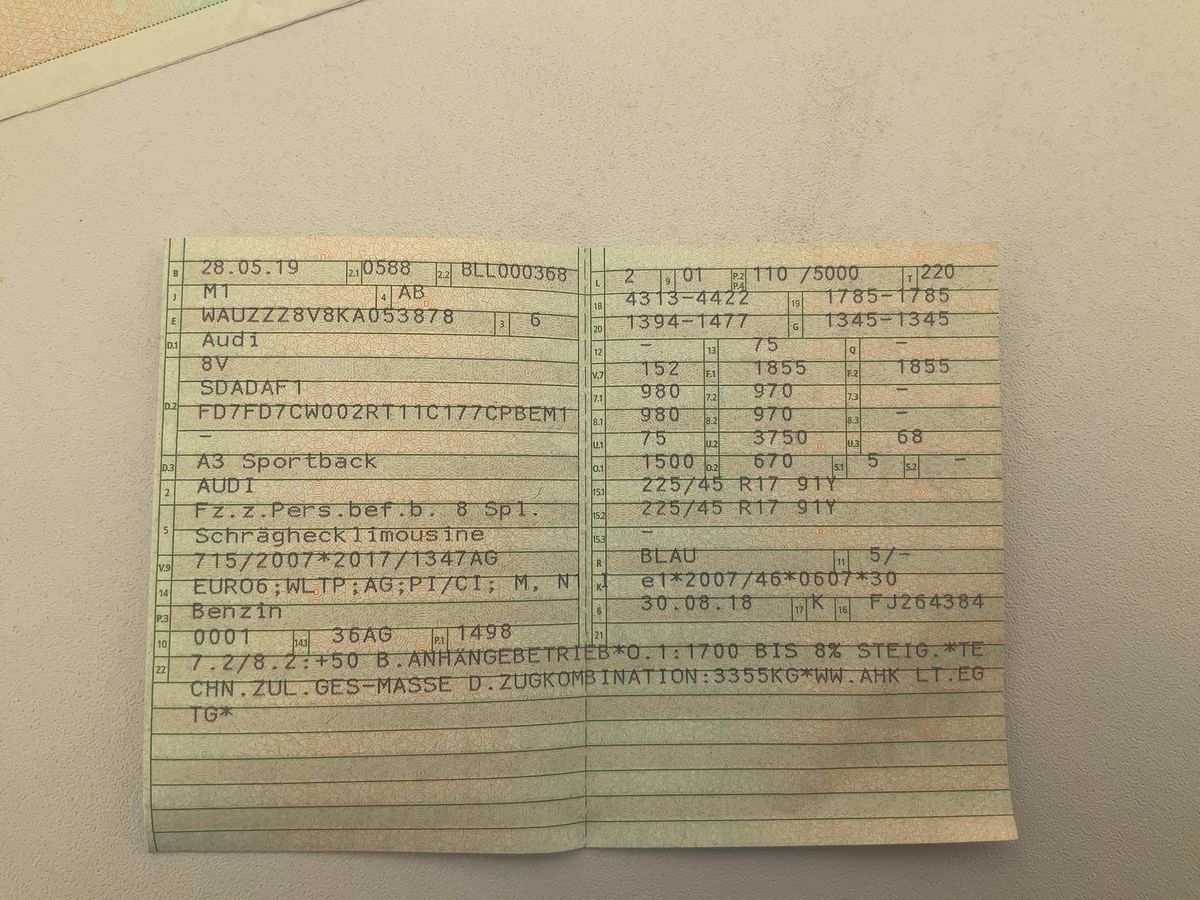 B 28.05.19 2.1 0588 2.2 BLL000368
J M1 4 AB
E WAUZZZ8V8KA053878 3 6
D.1 Audi
8V
SDADAF1
D.2 FD7FD7CW002RT11C177CPBEM1
–
D.3 A3 Sportback
2 AUDI
Fz.z.Pers.bef.b. 8 Spl.
5 Schräghecklimousine
V.9 715/2007*2017/1347AG
14 EURO6;WLTP;AG;PI/CI; M, N1 I
P.3 Benzin
10 0001 14.1 36AG P.1 1498
L 2 9 01 P.2 P.4 110 /5000 T 220
18 4313-4422 19 1785-1785
20 1394-1477 G 1345-1345
12 – 13 75 Q –
V.7 152 F.1 1855 F.2 1855
7.1 980 7.2 970 7.3 –
8.1 980 8.2 970 8.3 –
U.1 75 U.2 3750 U.3 68
O.1 1500 O.2 670 S.1 5 S.2 –
15.1 225/45 R17 91Y
15.2 225/45 R17 91Y
15.3 –
R BLAU 11 5/–
K e1*2007/46*0607*30
6 30.08.18 17 K 16 FJ264384
21
22 7.2/8.2:+50 B.ANHÄNGEBETRIEB*O.1:1700 BIS 8% STEIG.*TE
CHN.ZUL.GES-MASSE D.ZUGKOMBINATION:3355KG*WW.AHK LT.EG
TG*